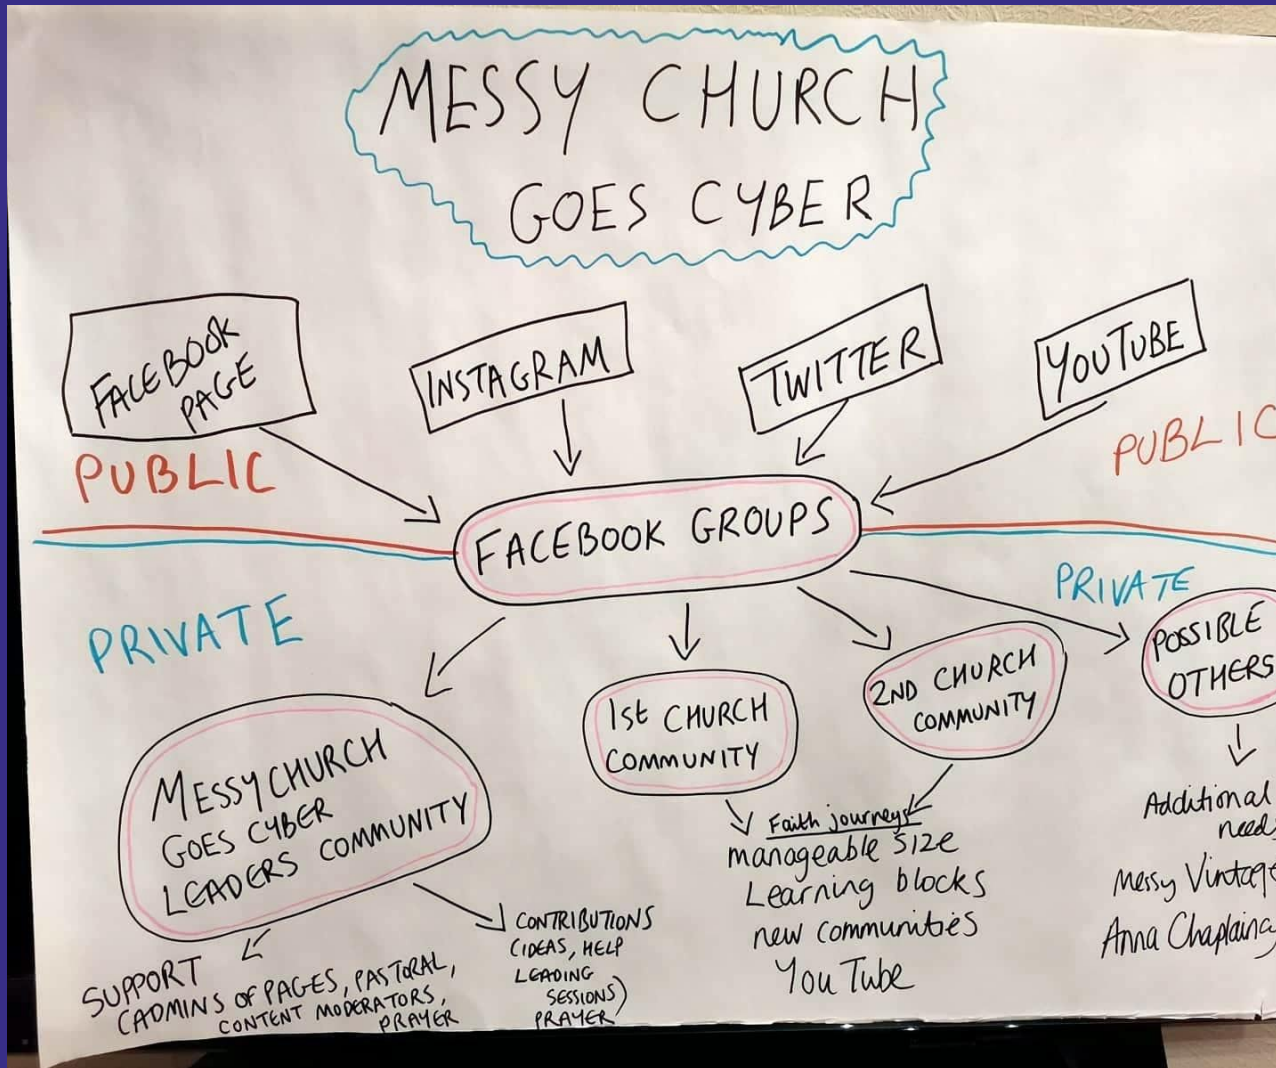 MESSY CHURCH
GOES CYBER
FACEBOOK
PAGE
INSTAGRAM
TWITTER
YOUTUBE
PUBLIC
PUBLIC
FACEBOOK GROUPS
PRIVATE
PRIVATE
MESSY CHURCH
GOES CYBER
LEADERS COMMUNITY
1st CHURCH
COMMUNITY
2ND CHURCH
COMMUNITY
POSSIBLE
OTHERS
SUPPORT
(ADMINS OF PAGES, PASTORAL,
CONTENT MODERATORS,
PRAYER
CONTRIBUTIONS
(IDEAS, HELP
LEADING
SESSIONS)
PRAYER
Faith journeys
manageable size
Learning blocks
new communities
YouTube
Additional
needs
Messy Vintage
Anna Chaplaincy